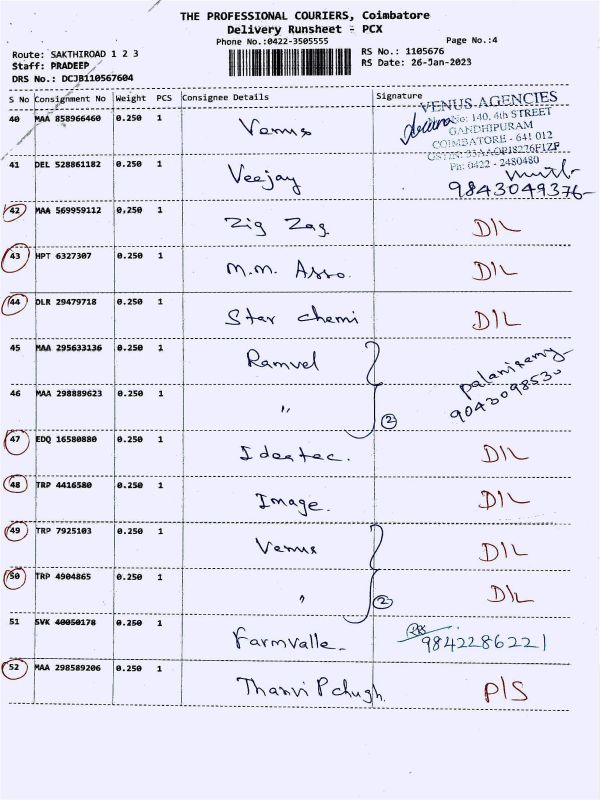 THE PROFESSIONAL COURIERS, Coimbatore
Delivery Runsheet - PCX
Phone No.:0422-3505555 Page No.:4
Route: SAKTHIROAD 1 2 3 RS No.: 1105676
Staff: PRADEEP RS Date: 26-Jan-2023
DRS No.: DCJB110567604
S No Consignment No Weight PCS Consignee Details Signature
VENUS AGENCIES
No: 140, 4th STREET
GANDHIPURAM
COIMBATORE - 641 012
Ph: 0422 - 2480480
40 MAA 858966460 0.250 1 Venus
41 DEL 528861182 0.250 1 Veejay 9843049376-
42 MAA 569959112 0.250 1 Zig Zag D/L
43 HPT 6327307 0.250 1 M.M. Asso. D/L
44 DLR 29479718 0.250 1 Star chemi D/L
45 MAA 295633136 0.250 1 Ramvel
46 MAA 298889623 0.250 1 " 2
47 EDQ 16580880 0.250 1 Ideatec. D/L
48 TRP 4416580 0.250 1 Image. D/L
49 TRP 7925103 0.250 1 Venus D/L
50 TRP 4904865 0.250 1 " 2 D/L
51 SVK 40050178 0.250 1 Farmvalle. 9842286221
52 MAA 298589206 0.250 1 Thanvi P chugh. P/S